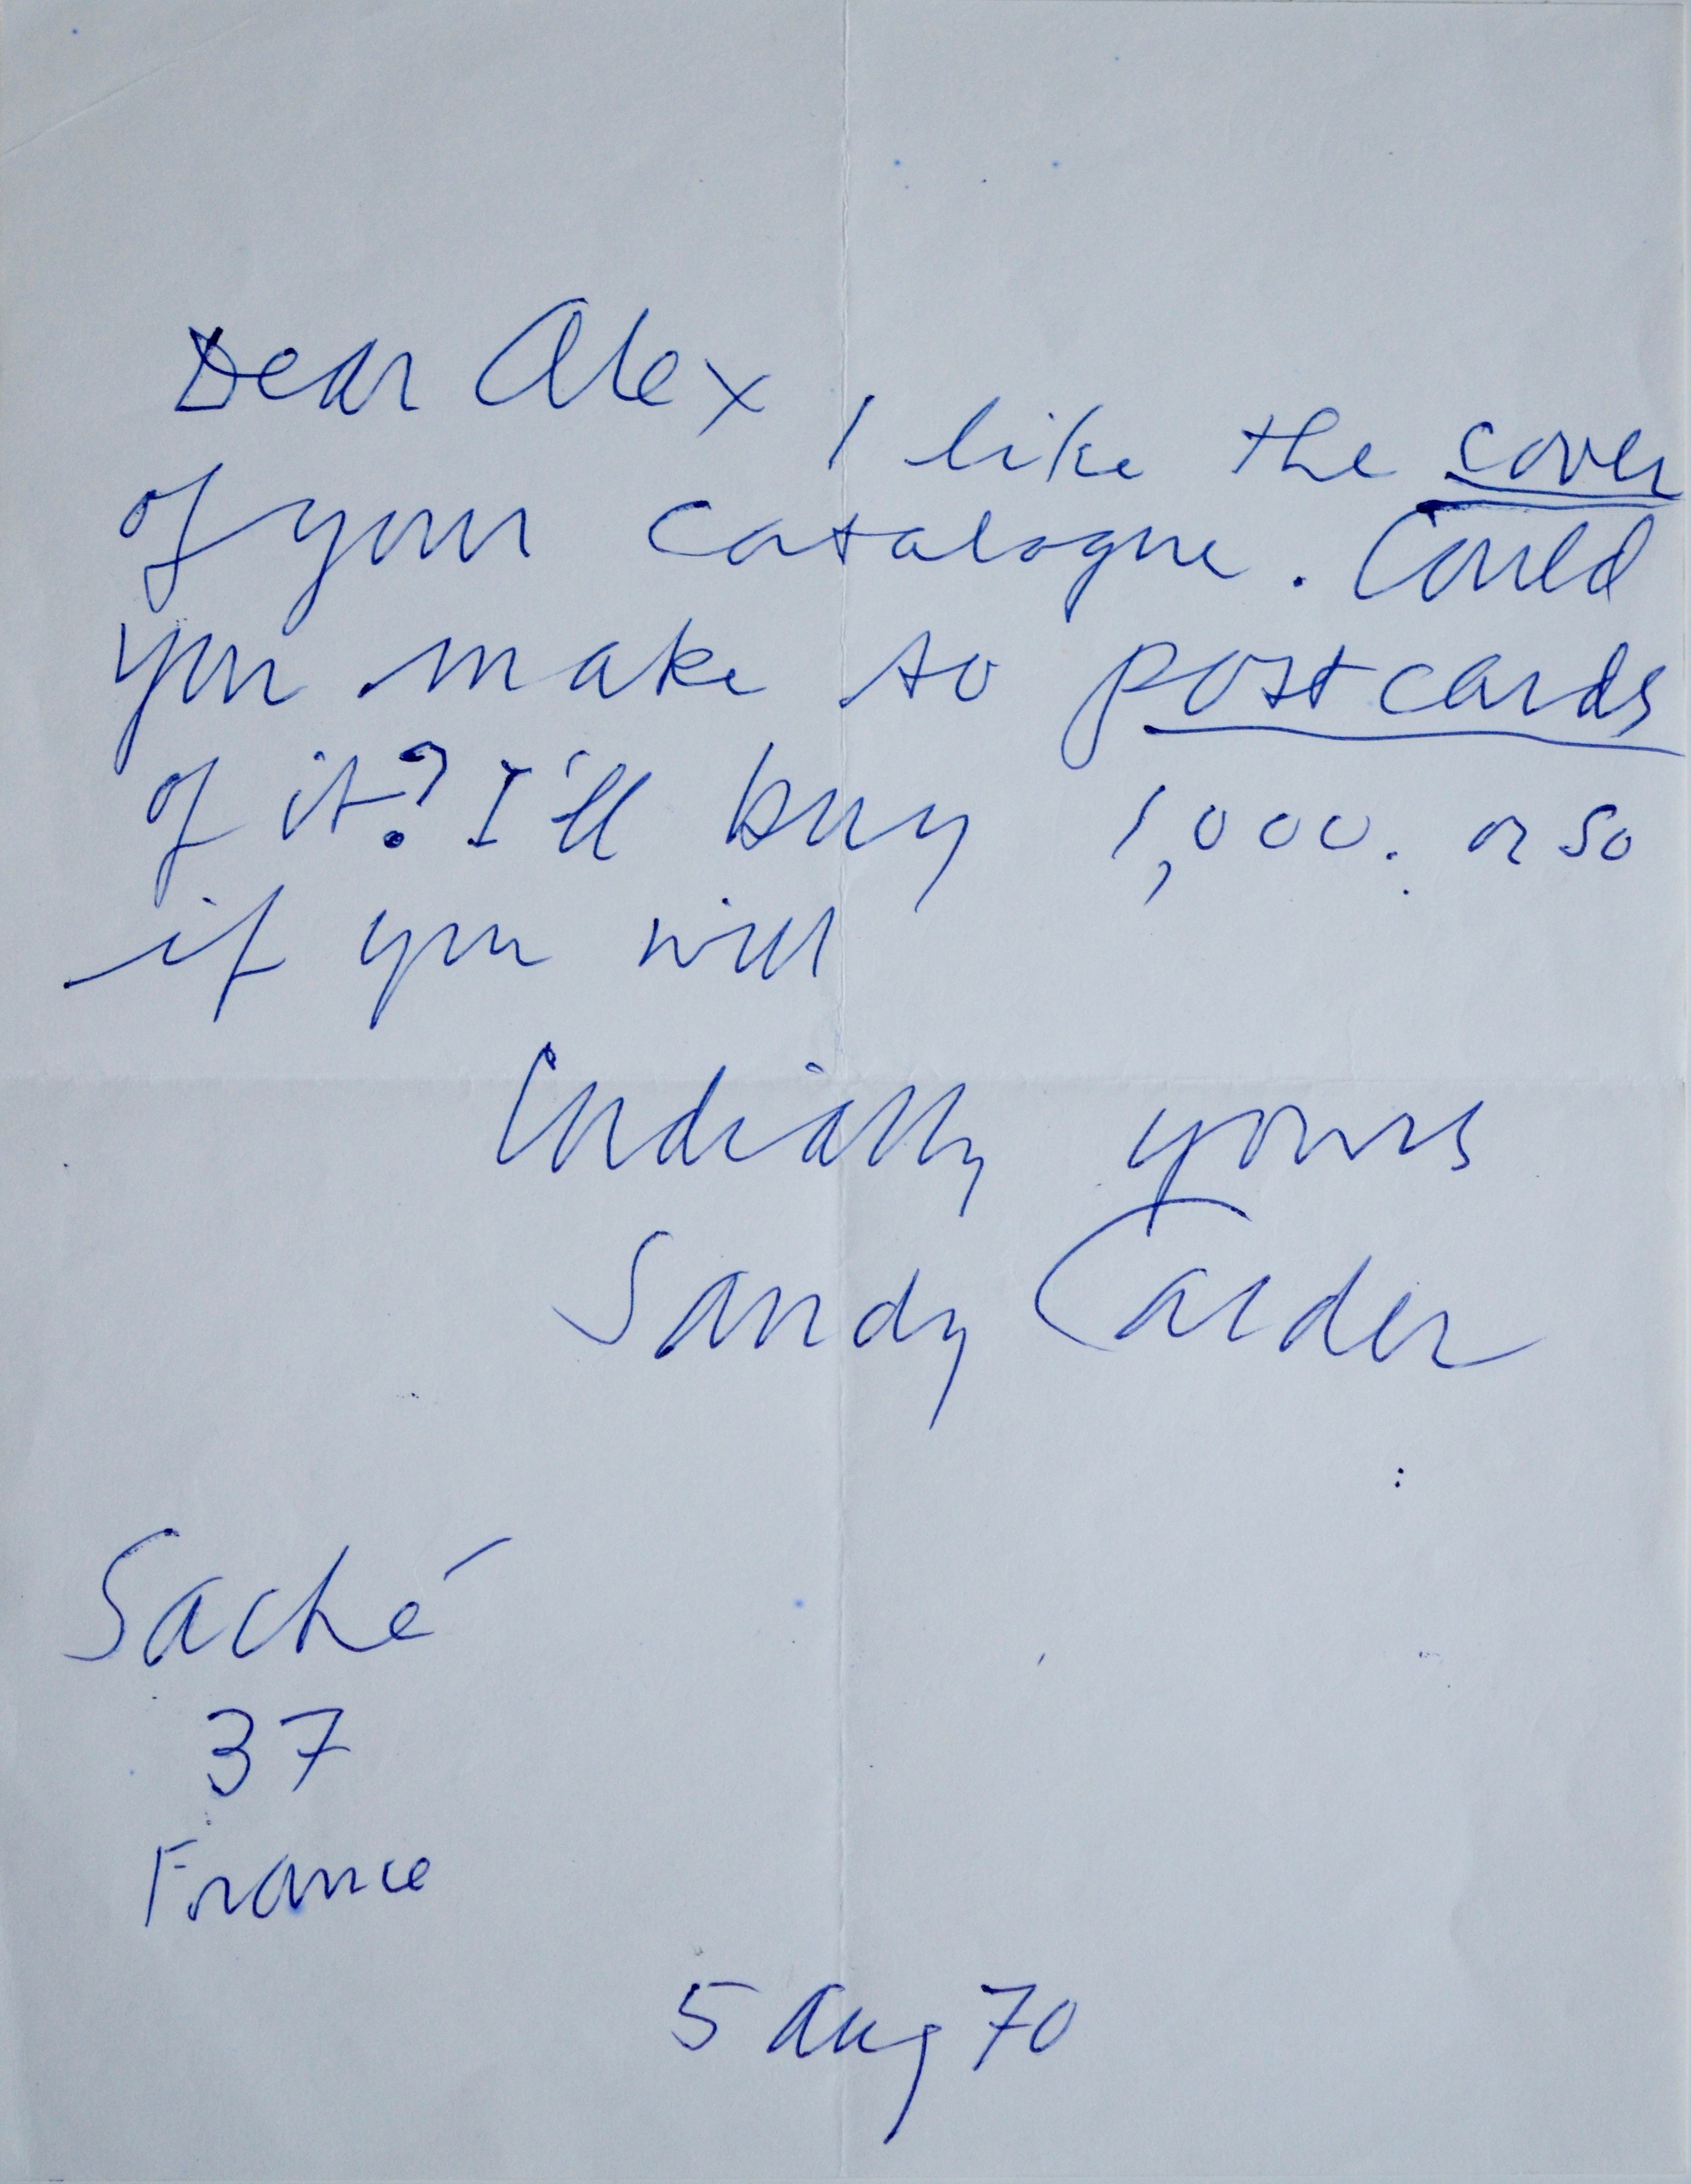 Dear Alex
I like the cover
of your catalogue. Could
you make so postcards
of it? I'll buy 1,000. or so
if you will
Cordially yours
Sandy Calder
Saché
37
France
5 Aug 70